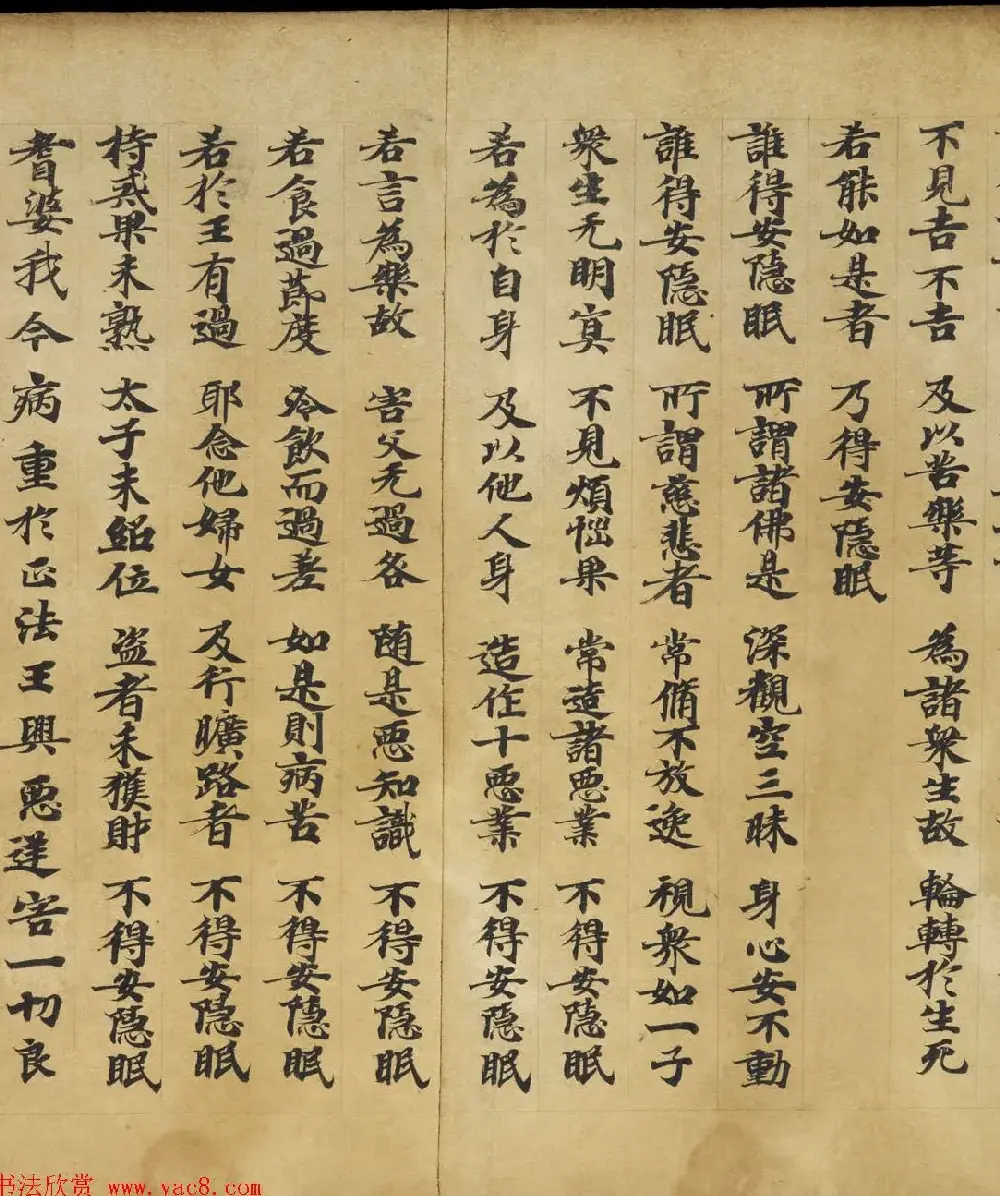 不見吉不吉 及以苦樂等 為諸衆生故 輪轉於生死
若能如是者 乃得安隱眠
誰得安隱眠 所謂諸佛是 深觀空三昧 身心安不動
誰得安隱眠 所謂慈悲者 常脩不放逸 視衆如一子
衆生无明冥 不見煩惱果 常造諸惡業 不得安隱眠
若為於自身 及以他人身 造作十惡業 不得安隱眠
若言為樂故 害父无過咎 随是惡知識 不得安隱眠
若食過莭度 冷飲而過差 如是則病苦 不得安隱眠
若於王有過 耶念他婦女 及行曠路者 不得安隱眠
持戒果未熟 太子未紹位 盜者未獲財 不得安隱眠
耆婆我今病重於正法王興惡逆害一切良
书法欣赏 www.yac8.com